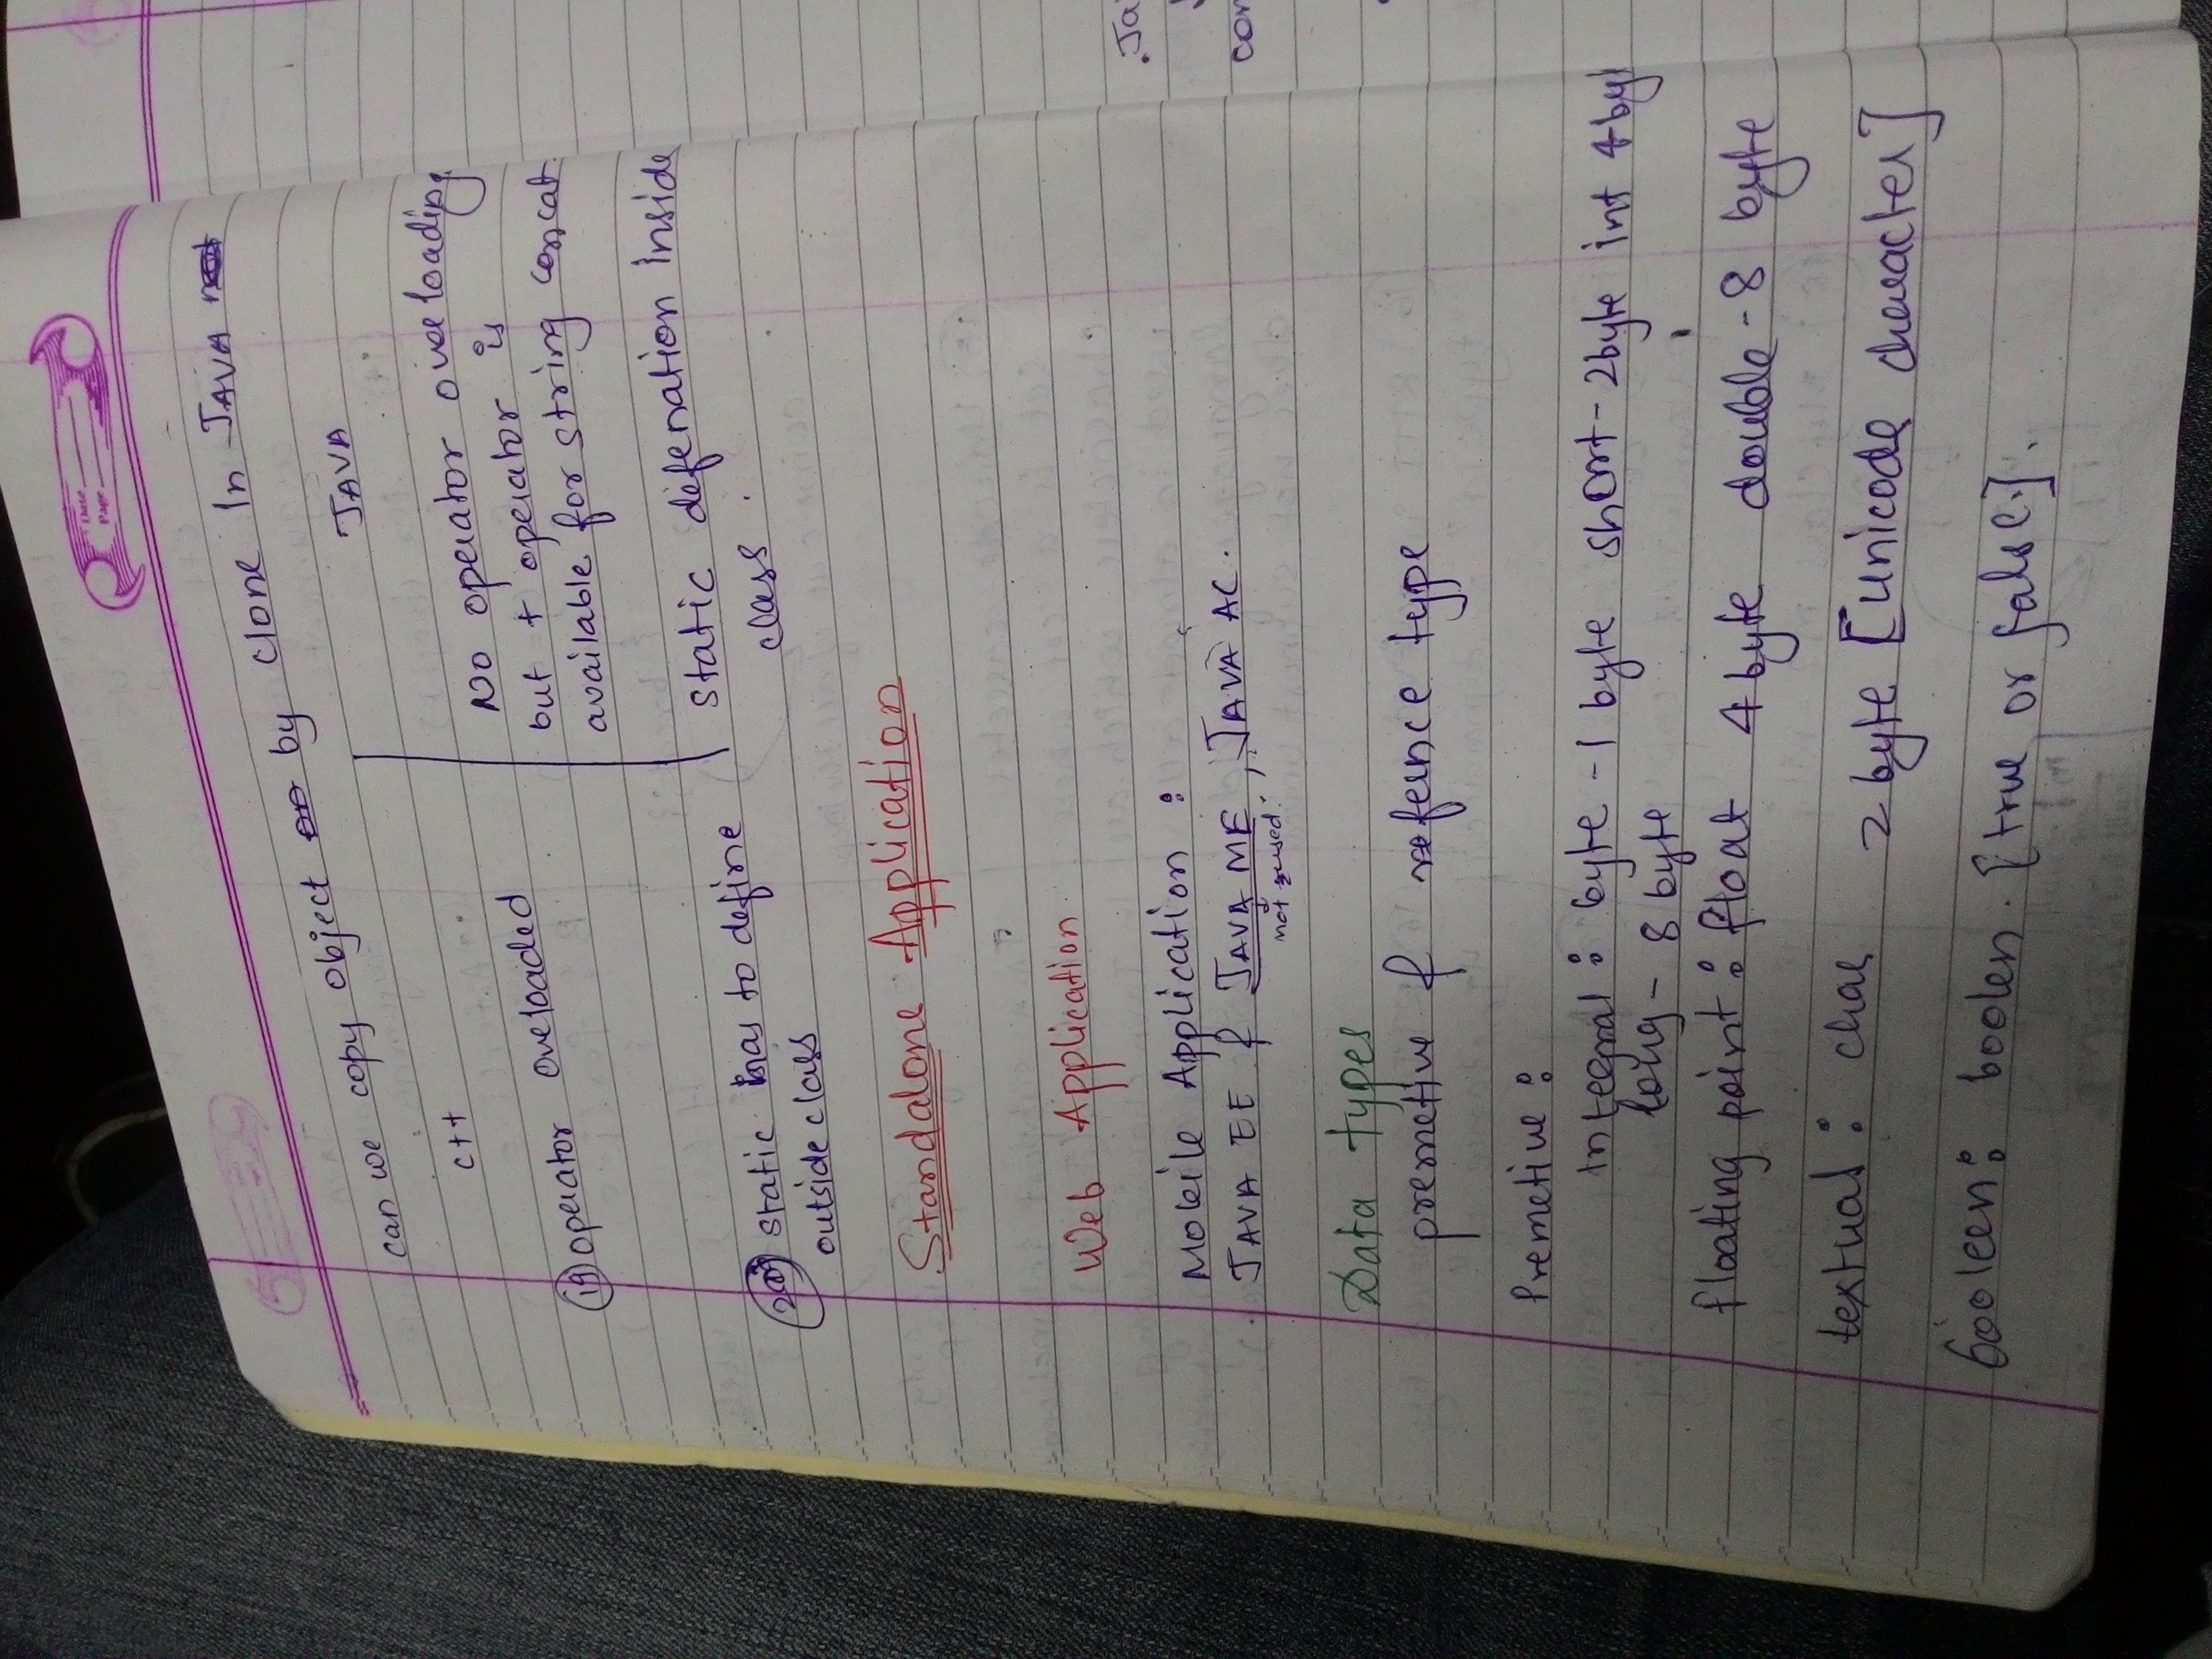 Date
Page
can we copy object by clone in JAVA
C++
JAVA
19 operator oveloaded
No operator oveeloading
but + operator is
available for string concat.
20 static has to define
outside class
static defenation inside
class.
Standalone Application
Web Application
Mobile Application :
JAVA EE & JAVA ME, JAVA AC.
not used.
Data types
premetive & refernce type
Premetive :
integral : byte - 1 byte short - 2byte int 4 byt
long - 8 byte
floating point : float 4 byte double - 8 byte
textual : char 2 byte [unicode character]
booleen : boolen. [true or false.].
.Ja
con